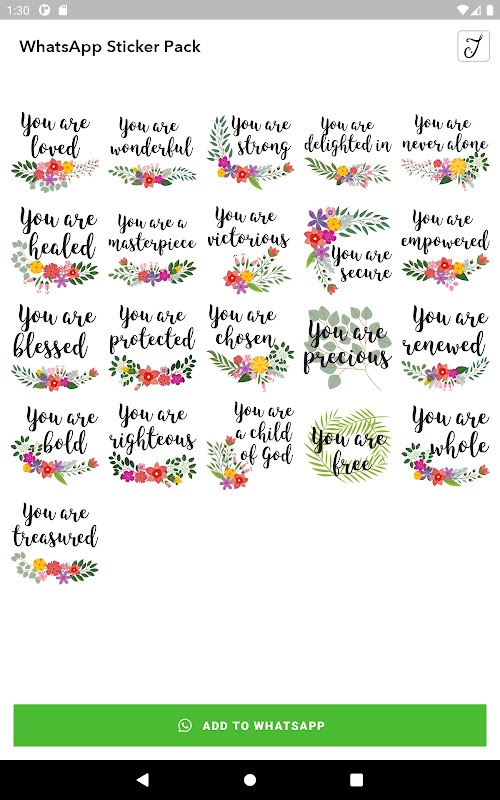 1:30
WhatsApp Sticker Pack
J
You are
loved
You are
wonderful
You are
strong
You are
delighted in
You are
never alone
You are
healed
You are a
masterpiece
You are
victorious
You are
secure
You are
empowered
You are
blessed
You are
protected
You are
chosen
You are
precious
You are
renewed
You are
bold
You are
righteous
You are
a child
of God
You are
free
You are
whole
You are
treasured
ADD TO WHATSAPP